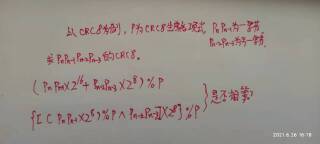 以CRC8为例,P为CRC8生成多项式, PnPn-1为一字节
Pn-2Pn-3为另一字节,
求PnPn-1Pn-2Pn-3的CRC8。
(PnPn-1×2^16+Pn-2Pn-3×2^8)%P
{[(PnPn-1×2^8)%P∧Pn-2Pn-3]×2^8}%P
}是否相等?
2021.6.26 16:18